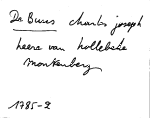 De Buus charles joseph
heere van hollebeke
monkenberg
1785-2